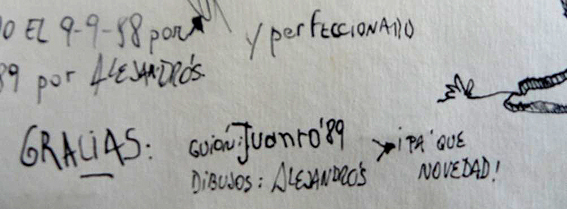 O EL 9-9-88 por y perfECCIONADO
89 por ALEJANDRO'S.
GRACIAS: GUIÓN: Juanro'89 ¡PA' QUE
DIBUJOS: ALEJANDRO'S NOVEDAD!